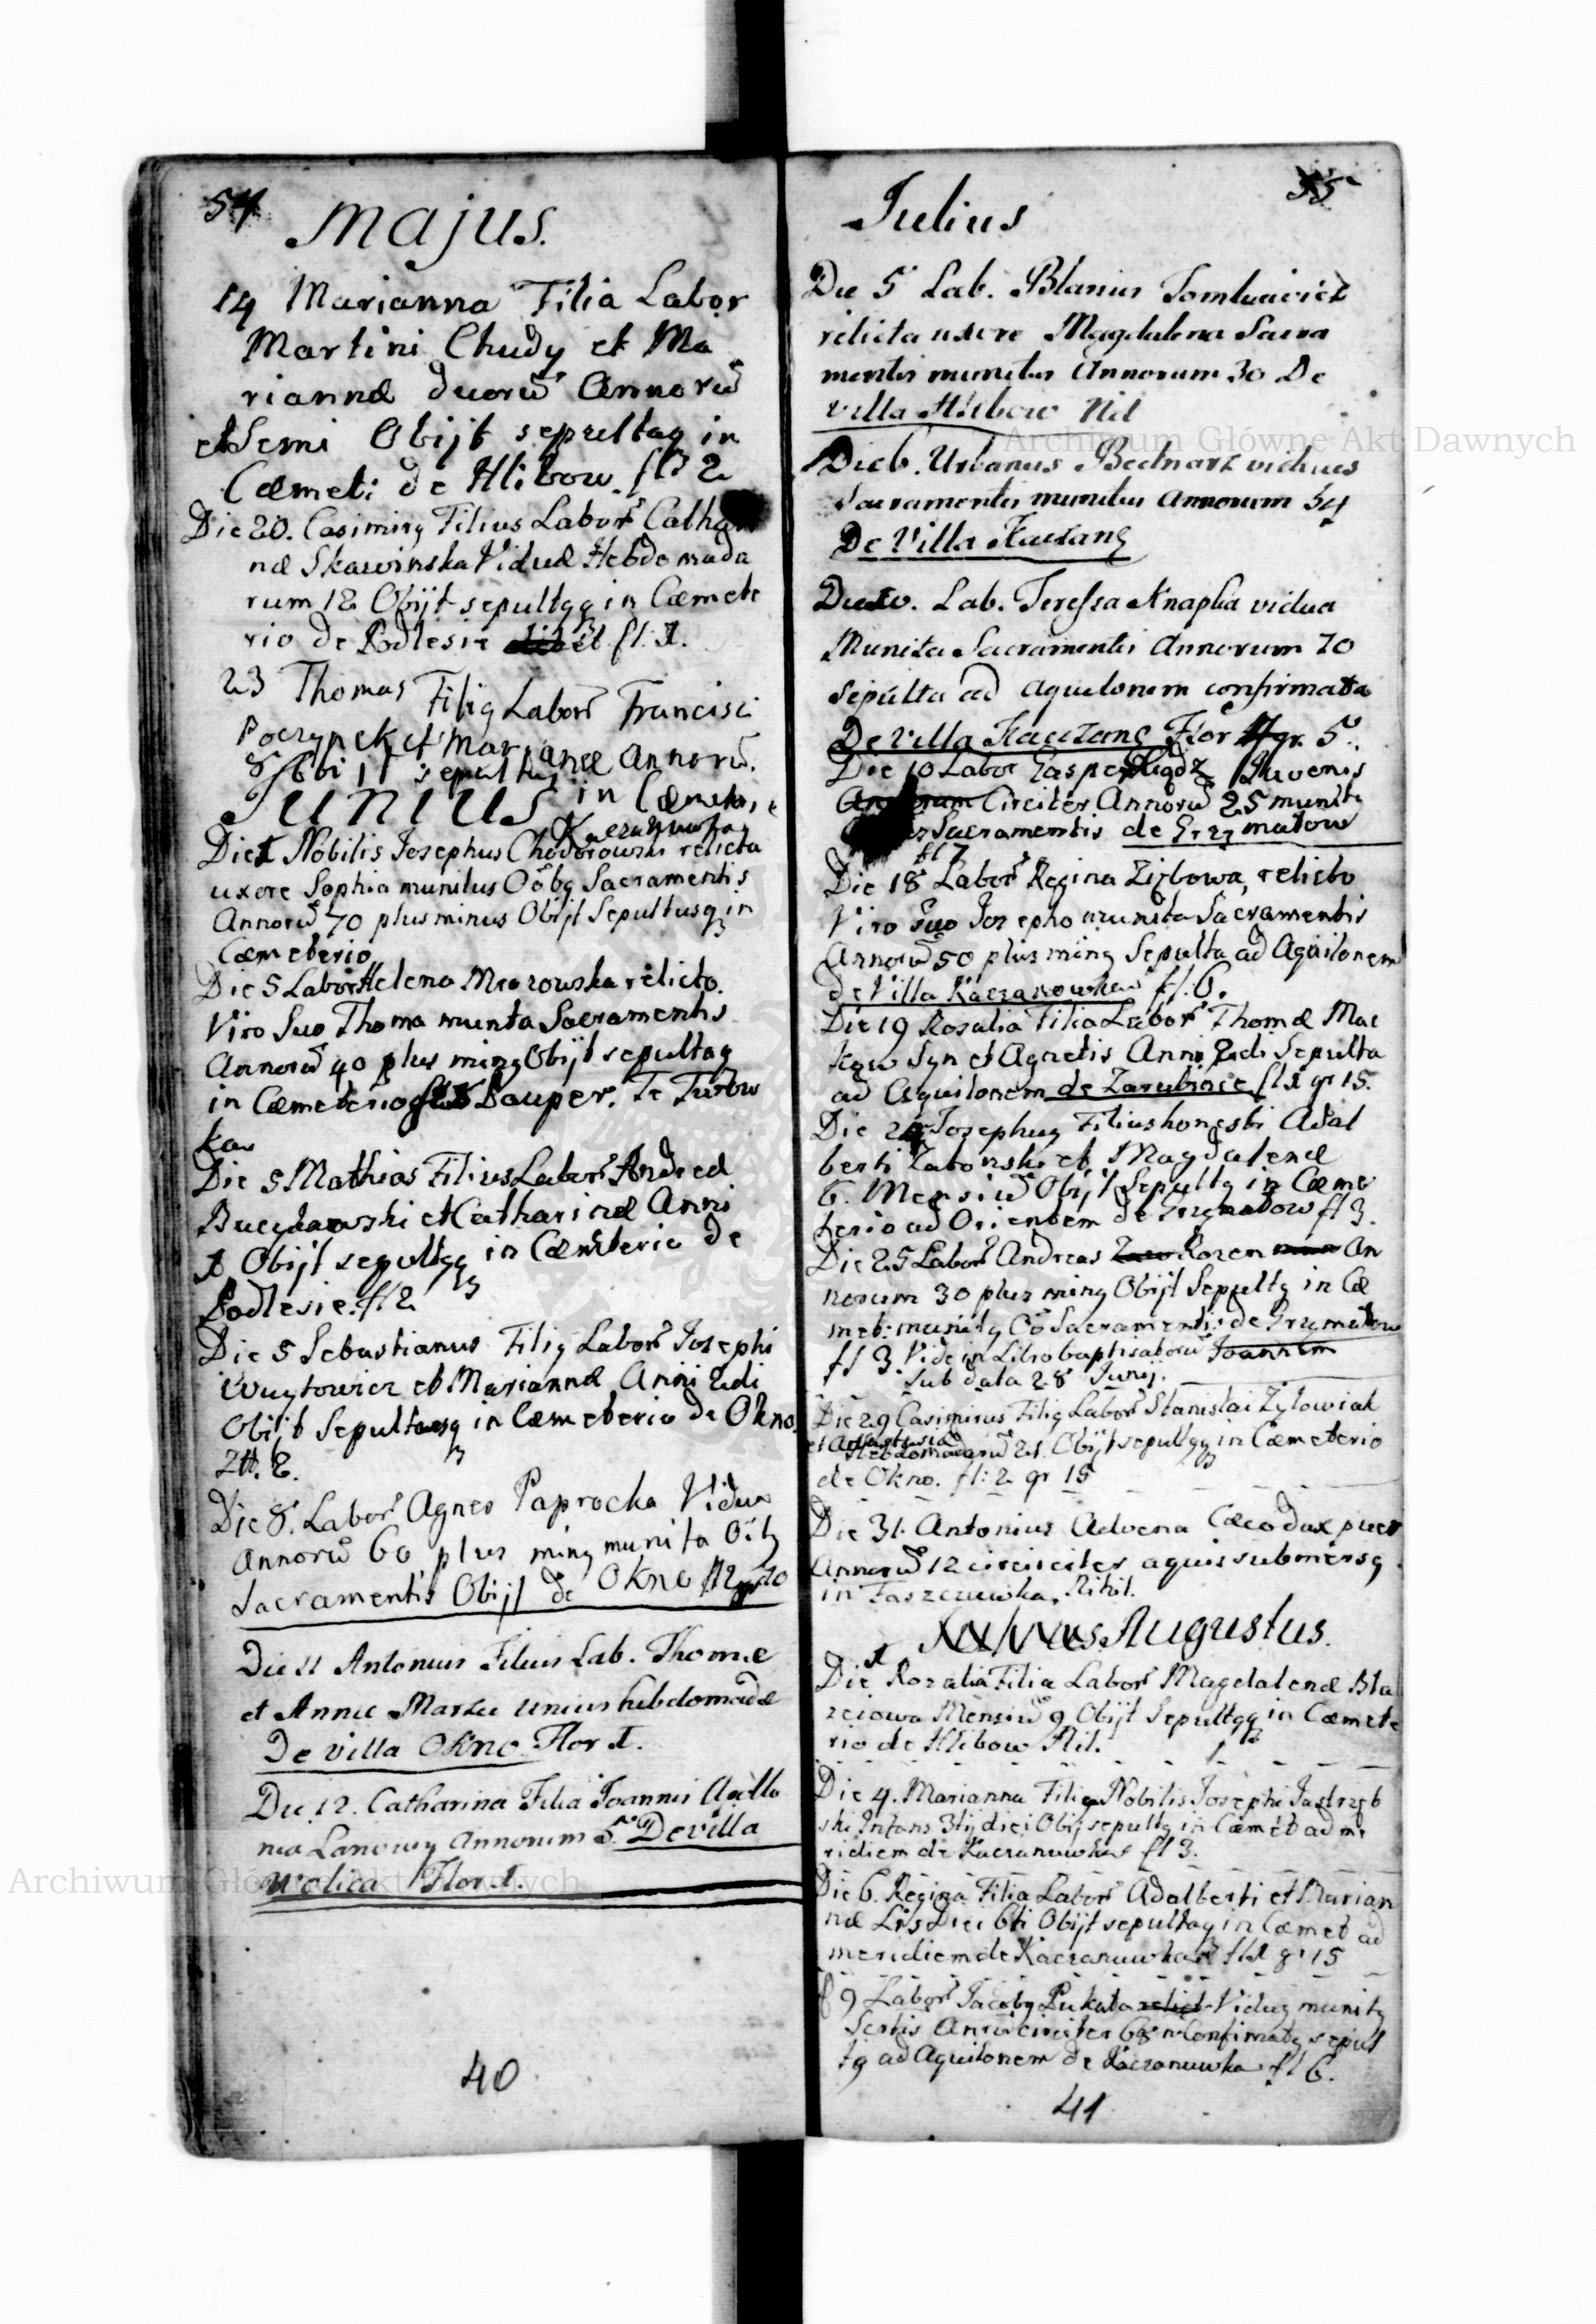 54
Majus.
14 Marianna Filia Labor
Martini Chudy et Ma
riannæ duorū Annorū
et Semi Obijt sepultaq in
Cæmeti de Hlibow. fl 2
Die 20. Casimirq Filius Labors Catha
næ Skawinska Viduæ Hebdomada
rum 12 Obijt sepultqq in Cæmete
rio de Podlesie fl: 1.
23 Thomas Filiq Labors Francisci
Poczynek et Marianæ Annorū.
8 Obijt sepultus in Cæmete
JUNIUS
Die 1 Nobilis Josephus Chodorowski relicta
uxore Sophia munitus Oōbq Sacramentis
Annorū 70 plus minus Obijt Sepultusq in
Cæmeterio
Die 5 Labor Helena Mrozowska relicto
Viro Suo Thoma munta Sacramentis
Annorū 40 plus minq Obijt sepultaq
in Cæmeterio Pauper. Te Turow
ka
Die 5 Mathias Filius Labors Andreæ
et Catharinæ Anni
1 Obijt sepultqq in Cæmeterio de
Podlesie. fl 2
Die 5 Sebastianus Filiq Labors Josephi
Wuytowicz et Mariannæ Anni 2di
Obijt Sepultusq in Cæmeterio de Okno
Die 8. Labors Agnes Paprocka Vidua
Annorū 60 plus minq munita Oīb
Sacramentis Obijt de Okno
Die 11 Antonius Filius Lab. Thomæ
et Annæ unius hebdomadæ
De villa Okno Flor 1.
Die 12. Catharina Filia Joannis Apollo
nia Lanowy Annorum 5. De villa
Wolica Flor. 1.
40
55
Julius
Die 5 Lab. Blasius Tomkiewicz
relicta uxore Magdalena Sacra
mentis munitus Annorum 30 De
villa Hlibow Nil
Die 6. Urbanus Bednarz viduus
Sacramentis munitus Annorum 54
De Villa Kaczang
Die 10. Lab. Teressa Knapka vidua
Munita Sacramentis Annorum 70
sepulta ad aquilonem confirmata
De villa Kaczang Flor gr. 5.
Die 10 Labor Juvenis
Circiter Annorū 25 munitq
Sacramentis de Grzymałow
fl 7
Die 18 Labors Regina Ziębowa, relicto
Viro Suo Josepho munita Sacramentis
Annorū 50 plus minq Sepulta ad Aquilonem
de Villa Kaczanowka fl. 6.
Die 19 Rosalia Filia Labors Thomæ Mac
kow Syn et Agnetis Anni 2di Sepulta
ad Aquilonem de Zarubince fl 1 gr 15.
Die Josephuq Filius honesti Adal
berti Zatonski et Magdalenæ
6. Mensiū Obijt Sepultq in Cæme
terio ad Orientem de Grzymałow fl 3.
Die 25 Labors Andreas Rozem An
norum 30 plus minq Obijt Sepultq in Cæ
met: munitq Oō Sacramentis de Grzymałow
fl 3. Vide in Libro baptisatorū Joannem
sub data 28 Junij.
Die 29 Casimirus Filiq Labors Stanislai Zyłowiak
et Anastasiæ
Hebdomadarū 21. Obijt sepultqq in Cæmeterio
de Okno. fl: 2 gr 15
Die 31. Antonius Advena Cæco dux puer
Annorū 12 circiciter aquis submersq
in Faszczuwka. Nihil.
Augustus.
Die 1 Rozalia Filia Labors Magdalenæ Bła
zeiowa Mensiū 9 Obijt Sepultqq in Cæmete
rio de Hlibow Nil.
Die 4. Marianna Filia Nobilis Josephi Jastrzęb
ski Infans 3tij diei Obij sepultq in Cæmet ad me
ridiem de Kaczanuwka fl 3.
Die 6. Regina Filia Labors Adalberti et Marian
næ Lis Diei 6ti Obijt sepultaq in Cæmet ad
meridiem de Kaczanuwka fl 1 gr 15
9 Labors Jacobq Pukała Viduq munitq
Sctis Anrū circiter 68 n Confirmatq sepul
tq ad Aquilonem de Kaczanuwka fl 6.
41
Archiwum Główne Akt Dawnych
Archiwum Główne Akt Dawnych